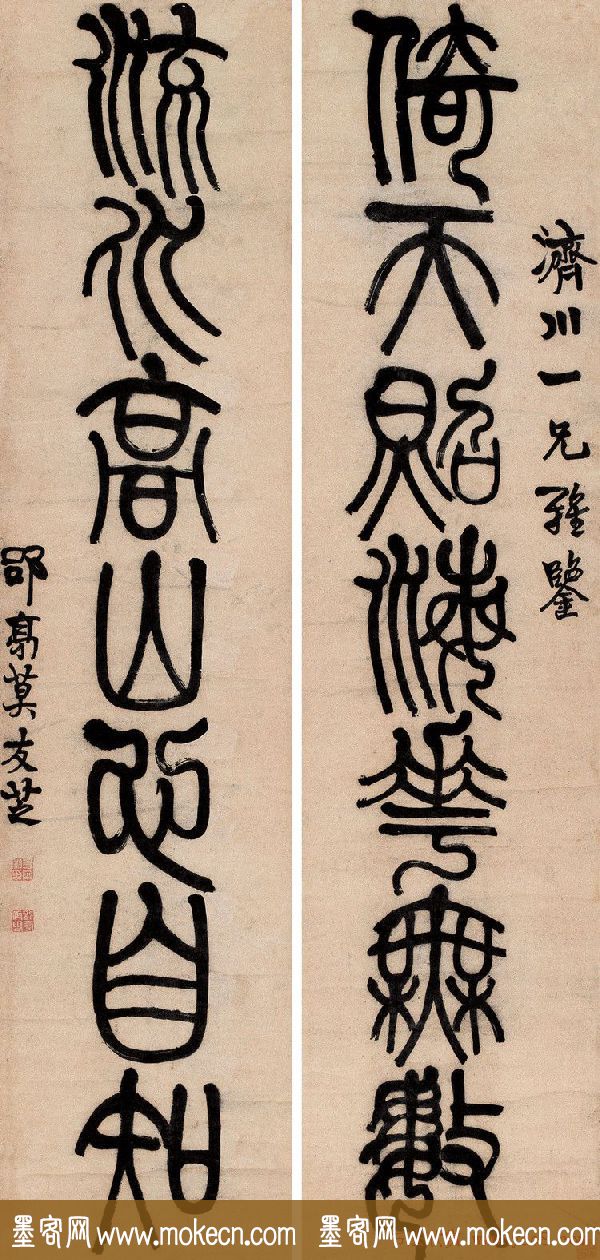 濟川一兄雅鑒
倚天照海花無數
流水高山心自知
郘亭莫友芝
墨客网 www.mokecn.com
墨客网 www.mokecn.com